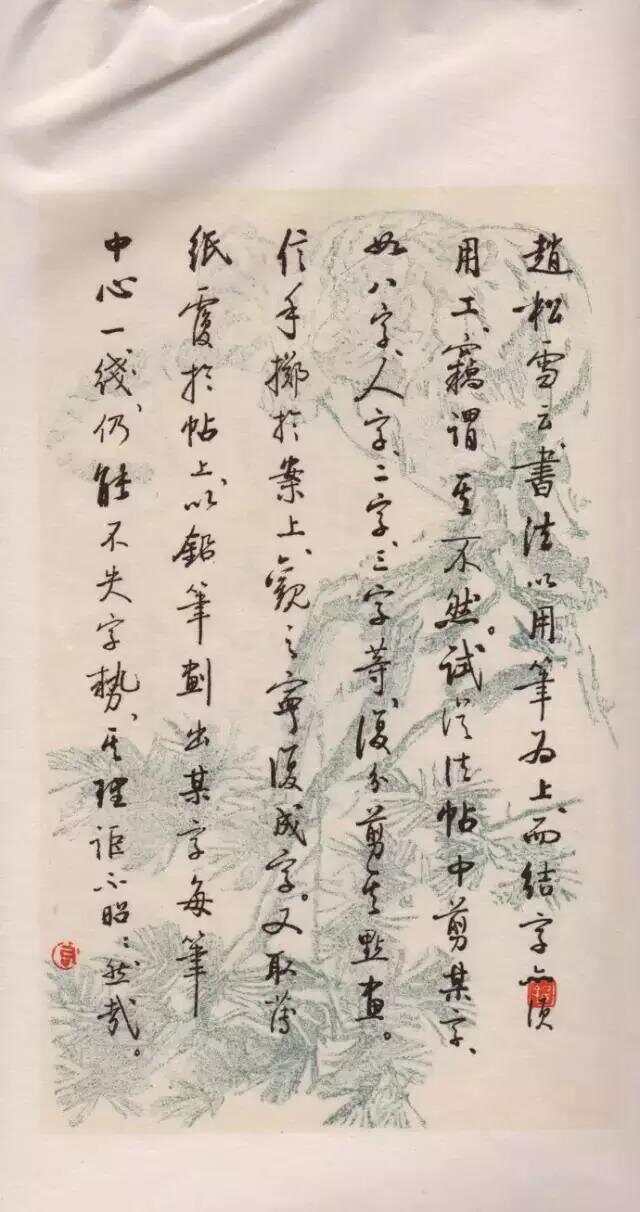 趙松雪云書法以用筆為上、而結字亦須
用工、竊謂其不然。試從法帖中剪某字、
如八字、人字、二字、三字等、復分剪其點畫。
信手擲於案上、觀之寧復成字。又取薄
紙覆於帖上、以鉛筆劃出某字每筆
中心一綫、仍能不失字勢、其理詎不昭昭然哉。